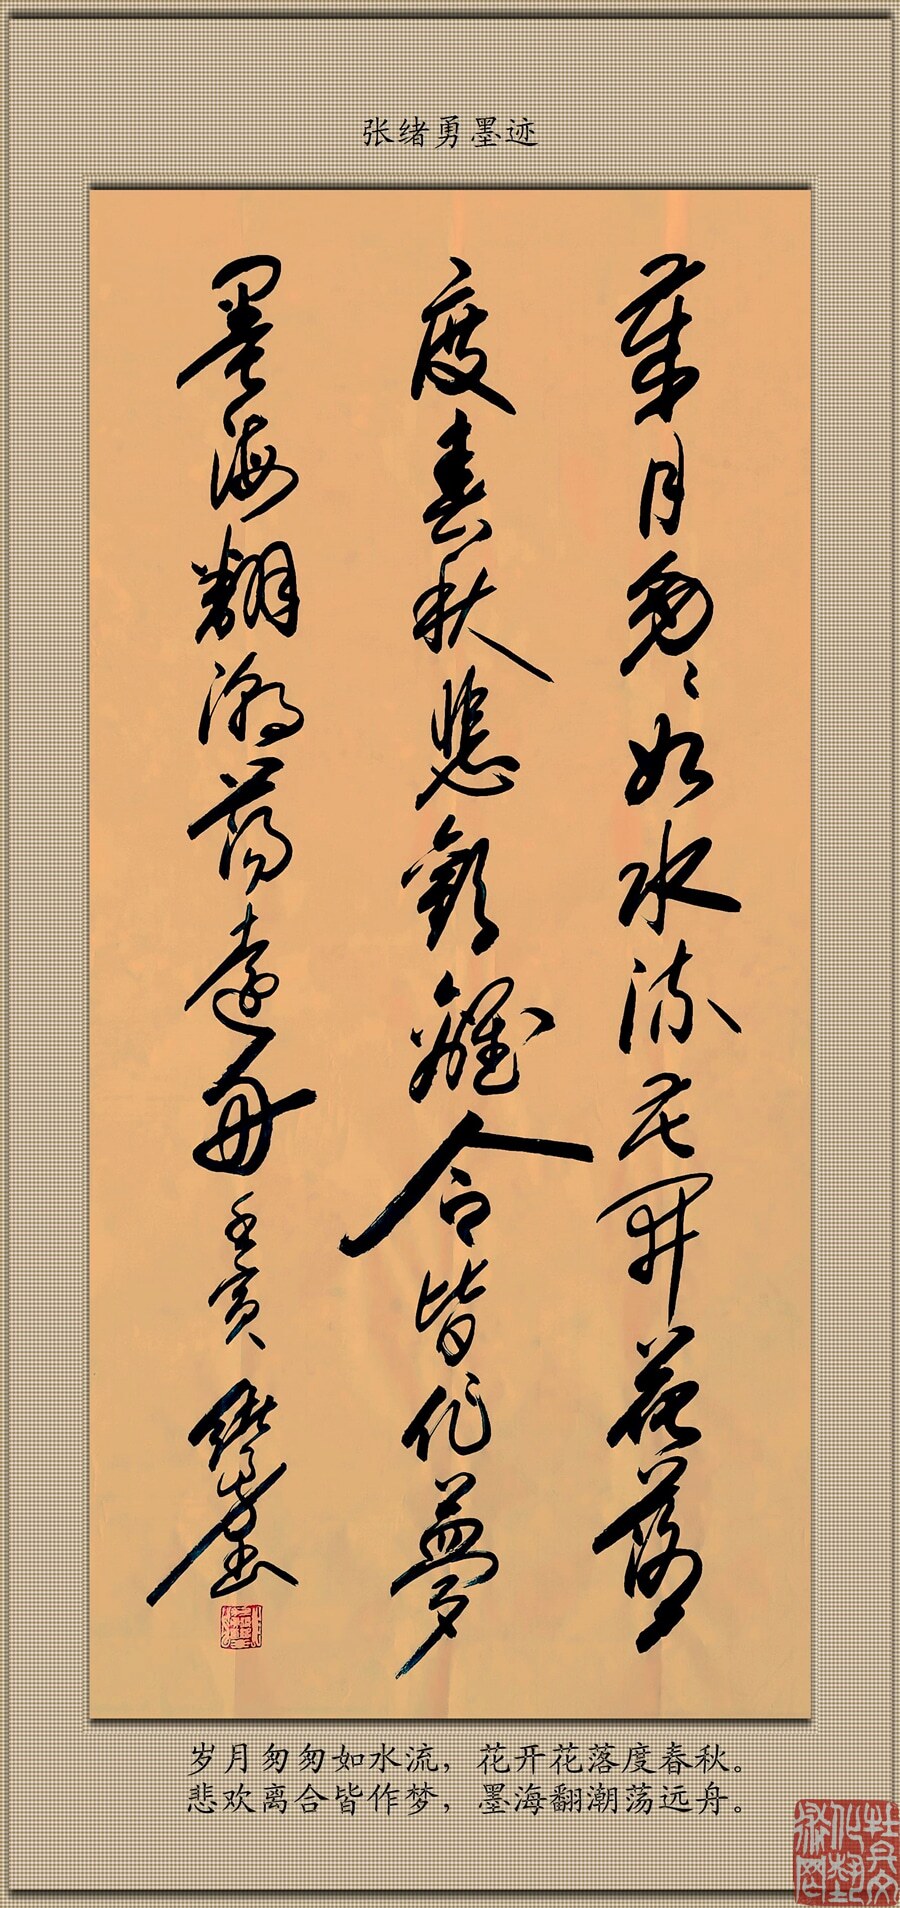 张绪勇墨迹
歲月匆〻如水流花開花落
度春秋悲歡離合皆作夢
墨海翻潮蕩遠舟壬寅緒勇書
岁月匆匆如水流，花开花落度春秋。
悲欢离合皆作梦，墨海翻潮荡远舟。